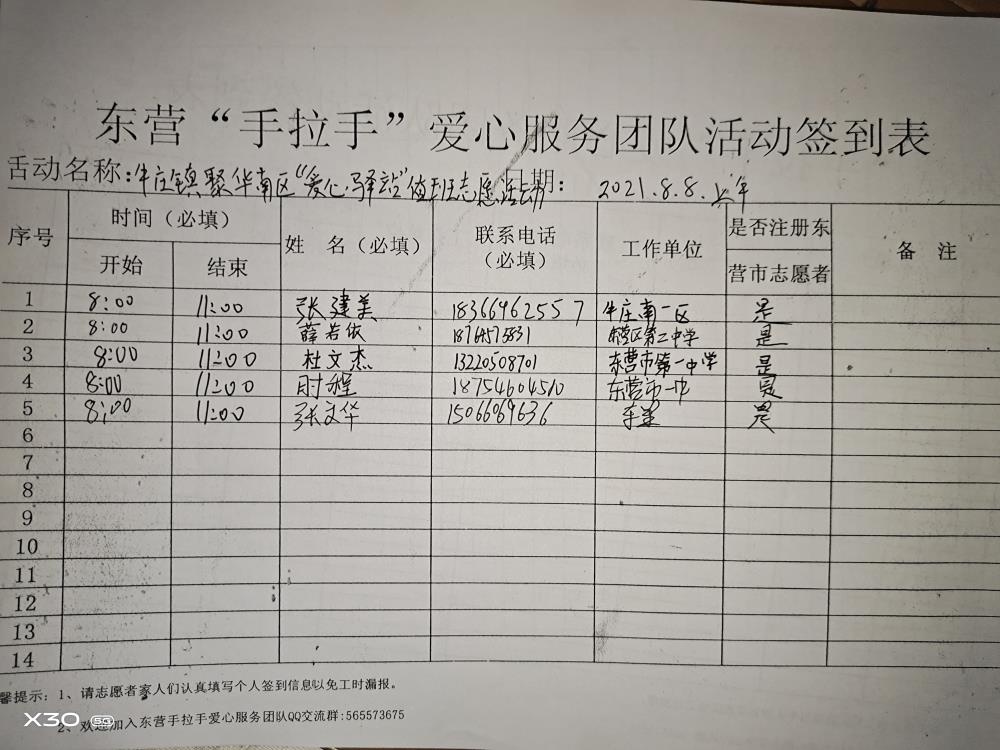 东营“手拉手”爱心服务团队活动签到表
活动名称:牛庄镇聚华南区“爱心驿站”值班志愿活动 日期: 2021.8.8.上午
序号 时间（必填） 姓 名（必填） 联系电话（必填） 工作单位 是否注册东营市志愿者 备 注
开始 结束
1 8:00 11:00 张建美 18366962557 牛庄南一区 是
2 8:00 11:00 薛若依 18764575831 东营区第二中学 是
3 8:00 11:00 杜文杰 13220508701 东营市第一中学 是
4 8:00 11:00 时程 18754604510 东营市一中 是
5 8:00 11:00 张文华 15066069636 是
6
7
8
9
10
11
12
13
14
馨提示：1、请志愿者家人们认真填写个人签到信息以免工时漏报。
2、欢迎加入东营手拉手爱心服务团队QQ交流群:565573675
X30 5G